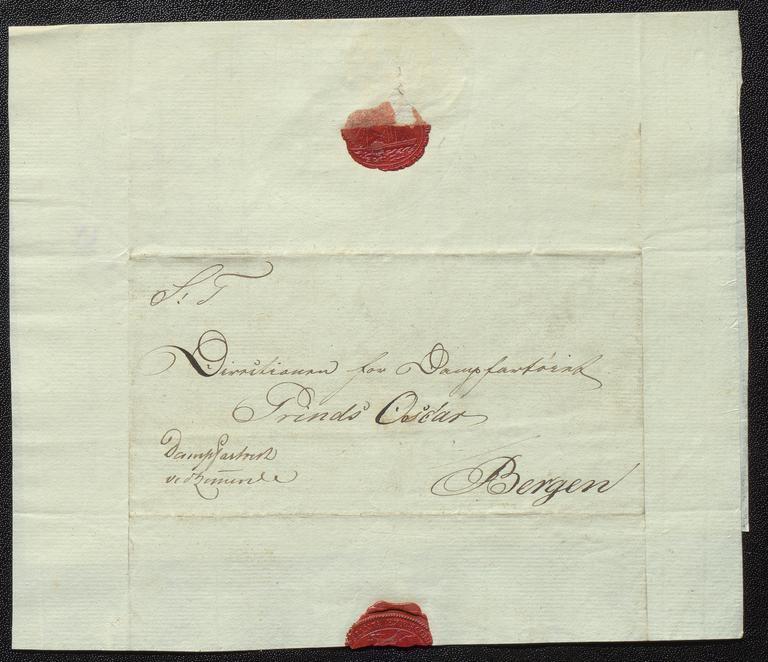 S: T
Directionen for Dampfartöiet
Prinds Oscar
Dampfartoiet
vedkommende
Bergen